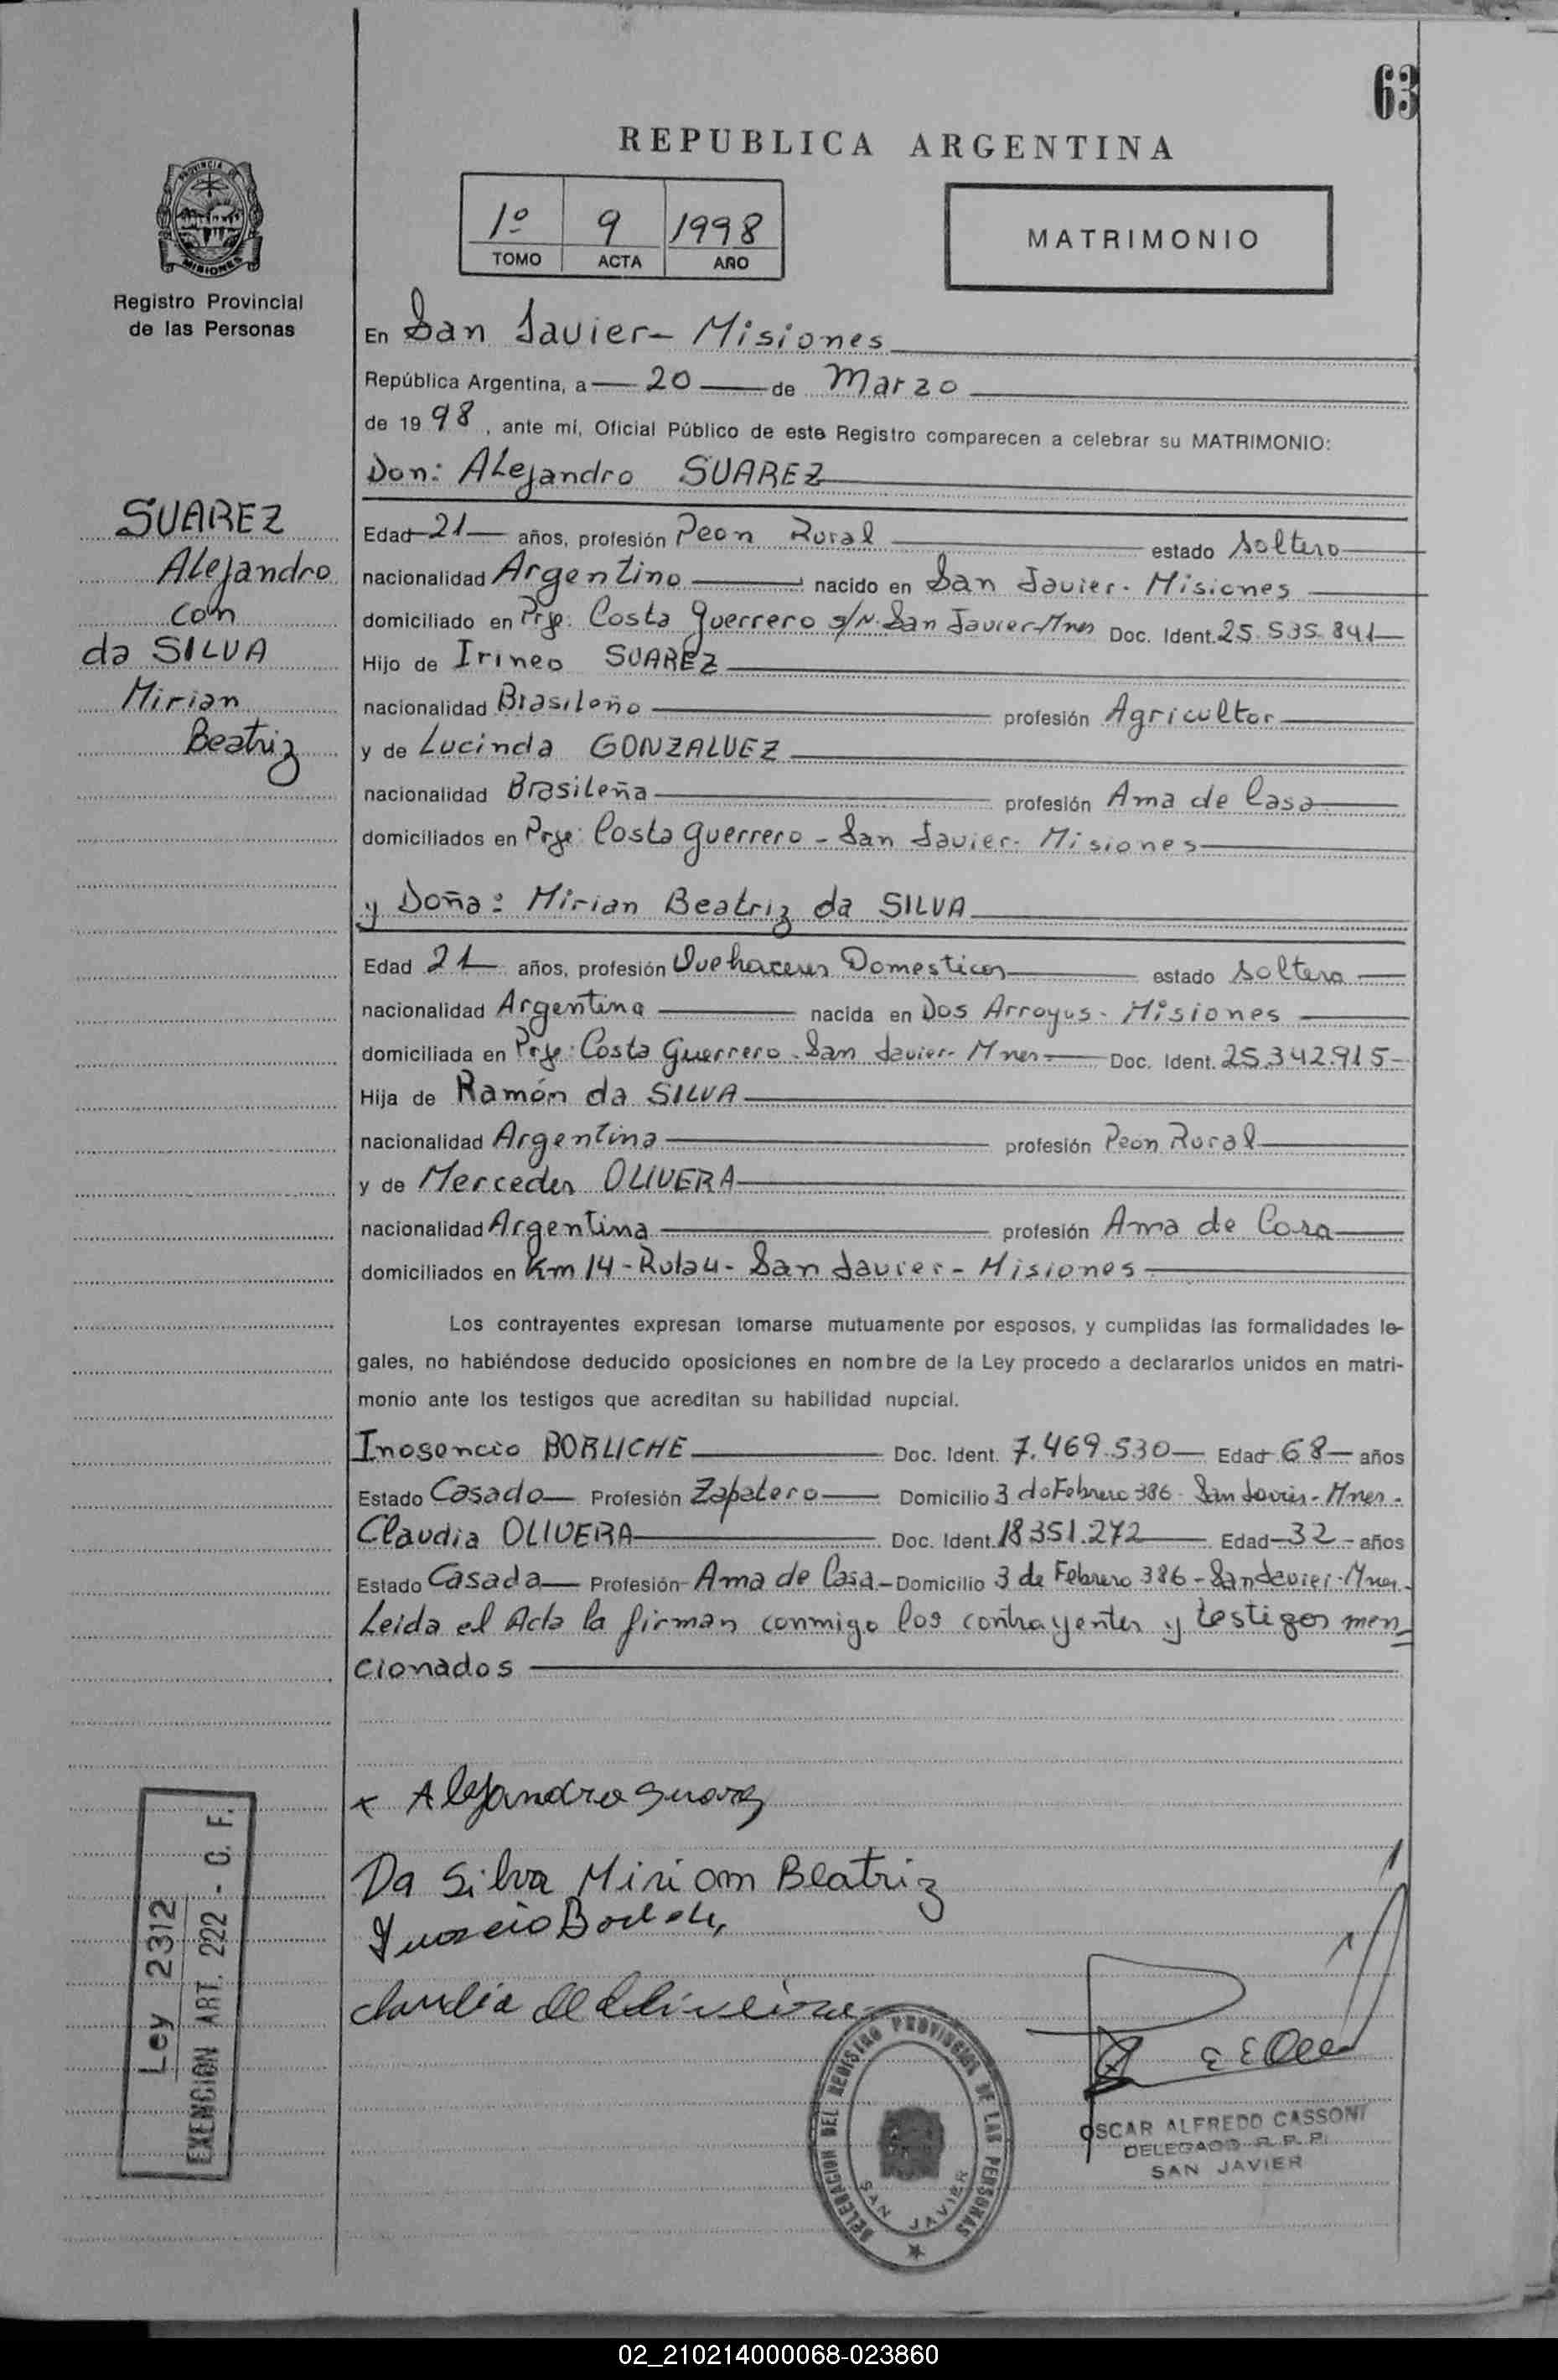 63
REPUBLICA ARGENTINA
PROVINCIA DE
MISIONES
1º 9 1998
TOMO ACTA AÑO
MATRIMONIO
Registro Provincial
de las Personas
En San Javier- Misiones
República Argentina, a 20 de Marzo
de 1998, ante mí, Oficial Público de este Registro comparecen a celebrar su MATRIMONIO:
Don: Alejandro SUAREZ
SUAREZ
Alejandro
con
da SILVA
Mirian
Beatriz
Edad 21 años, profesión Peon Rural estado Soltero
nacionalidad Argentino nacido en San Javier- Misiones
domiciliado en Prje: Costa Guerrero s/N. San Javier-Mnes Doc. Ident. 25.535.841
Hijo de Irineo SUAREZ
nacionalidad Brasileño profesión Agricultor
y de Lucinda GONZALVEZ
nacionalidad Brasileña profesión Ama de Casa
domiciliados en Prje: Costa Guerrero - San Javier- Misiones
y Doña: Mirian Beatriz da SILVA
Edad 21 años, profesión Quehaceres Domesticos estado Soltera
nacionalidad Argentina nacida en Dos Arroyos- Misiones
domiciliada en Prje: Costa Guerrero - San Javier- Mnes- Doc. Ident. 25.342.915-
Hija de Ramón da SILVA
nacionalidad Argentina profesión Peon Rural
y de Mercedes OLIVERA
nacionalidad Argentina profesión Ama de Casa
domiciliados en Km 14 - - San Javier - Misiones
Los contrayentes expresan tomarse mutuamente por esposos, y cumplidas las formalidades le-
gales, no habiéndose deducido oposiciones en nombre de la Ley procedo a declararlos unidos en matri-
monio ante los testigos que acreditan su habilidad nupcial.
Inosencio BORLICHE Doc. Ident. 7.469.530 Edad 68 años
Estado Casado Profesión Zapatero Domicilio 3 de Febrero 386- San Javier- Mnes-
Claudia OLIVERA Doc. Ident. 18351.272 Edad 32 años
Estado Casada Profesión Ama de Casa Domicilio 3 de Febrero 386 - San Javier- Mnes-
Leida el Acta la firman conmigo los contrayentes y testigos men
cionados
x Alejandro Suarez
Da Silva Miriam Beatriz
Ley 2312
EXENCION ART. 222 - C. F.
DELEGACION DEL REGISTRO PROVINCIAL DE LAS PERSONAS
SAN JAVIER
OSCAR ALFREDO CASSONI
DELEGADO R. P. P.
SAN JAVIER
02_210214000068-023860